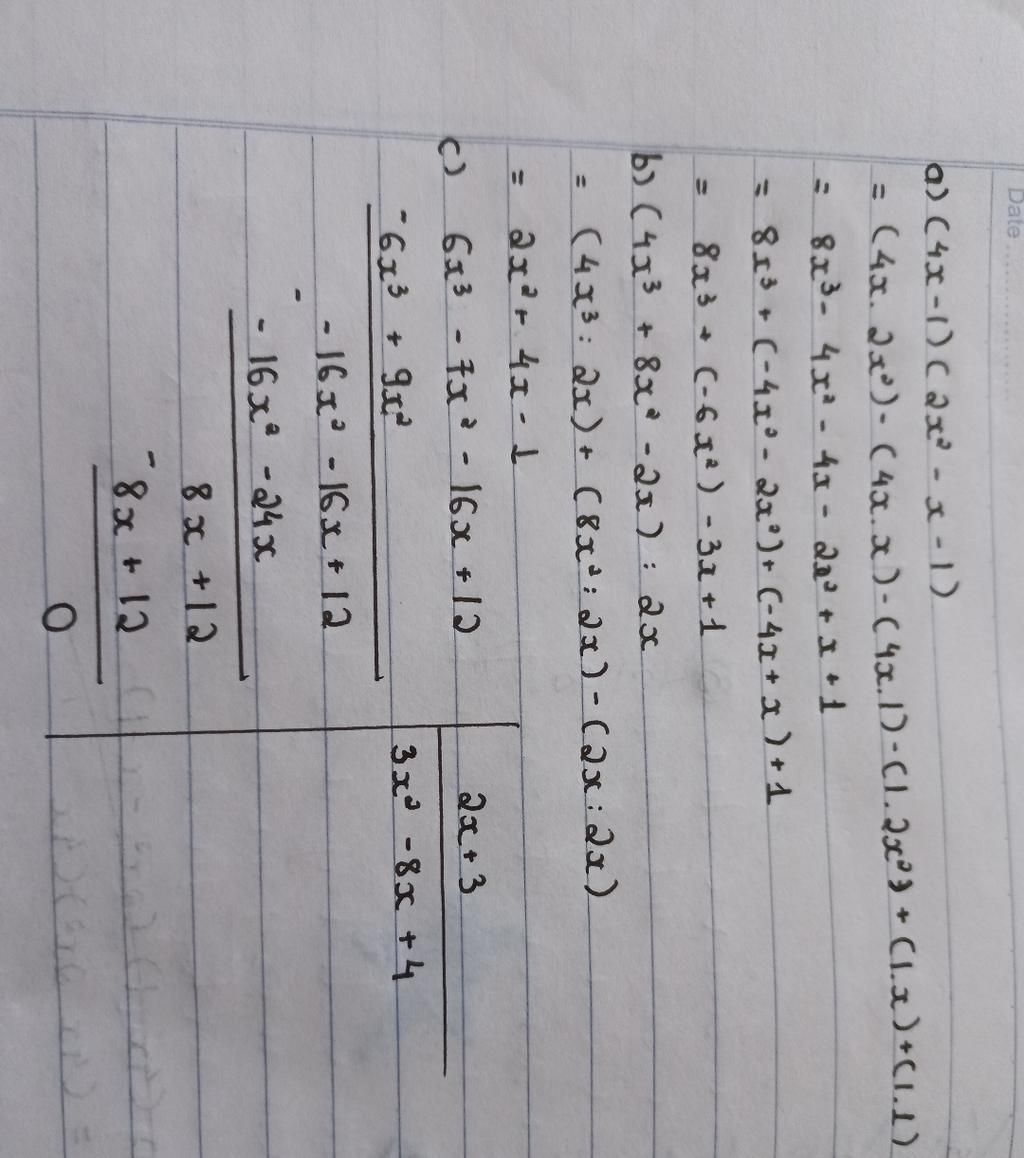 Date
a) (4x-1)(2x² - x - 1)
= (4x. 2x²) - (4x. x) - (4x.1) - (1. 2x²) + (1.x) + (1.1)
= 8x³ - 4x² - 4x - 2x² + x + 1
= 8x³ + (-4x² - 2x²) + (-4x + x) + 1
= 8x³ + (-6x²) - 3x + 1
b) (4x³ + 8x² - 2x) : 2x
= (4x³ : 2x) + (8x² : 2x) - (2x : 2x)
= 2x² + 4x - 1
c) 6x³ - 7x² - 16x + 12 2x + 3
- 6x³ + 9x² 3x² - 8x + 4
- 16x² - 16x + 12
- - 16x² - 24x
8x + 12
- 8x + 12
0